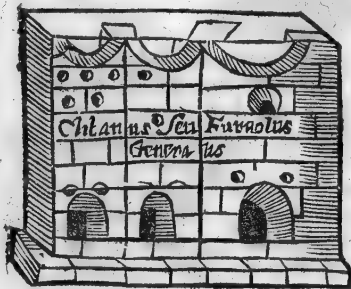 Clibanus Seu Furnolus
Genera us